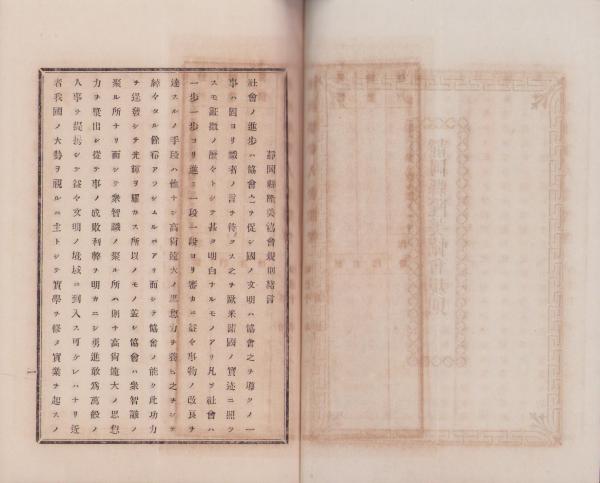 靜岡縣隆美協會規則緒言
社會ノ進步ハ協會之ヲ促シ國ノ文明ハ協會之ヲ導クノ一
事ハ固ヨリ識者ノ言ヲ待タス之ヲ歐米諸國ノ實迹ニ照ラ
スモ証徵ノ歷々トシテ甚タ明白ナルモノアリ凡ヲ社會ハ
一步一步ヨリ進ミ一段一段ヨリ審カニ益々事物ノ改良ヲ
達スルノ手段ハ他ナシ高尚遠大ノ思想力ヲ養ヒ之ヲシテ
綽々タル餘裕アラシムルニアリ而シテ協會ノ能ク此功力
ヲ逞發シテ光輝ヲ耀カス所以ノモノ蓋シ協會ハ衆智識ノ
聚ル所ナリ而シテ衆智識ノ聚ル所ハ則チ高尚遠大ノ思想
力ヲ喚出シ從テ事ノ成敗利弊ヲ明カニシ勇進敢爲萬般ノ
人事ヲ提携シテ益々文明ノ域ニ到入ス可ケレハナリ近
者我國ノ大勢ヲ視ルニ主トシテ實學ヲ修メ實業ヲ起スノ
一